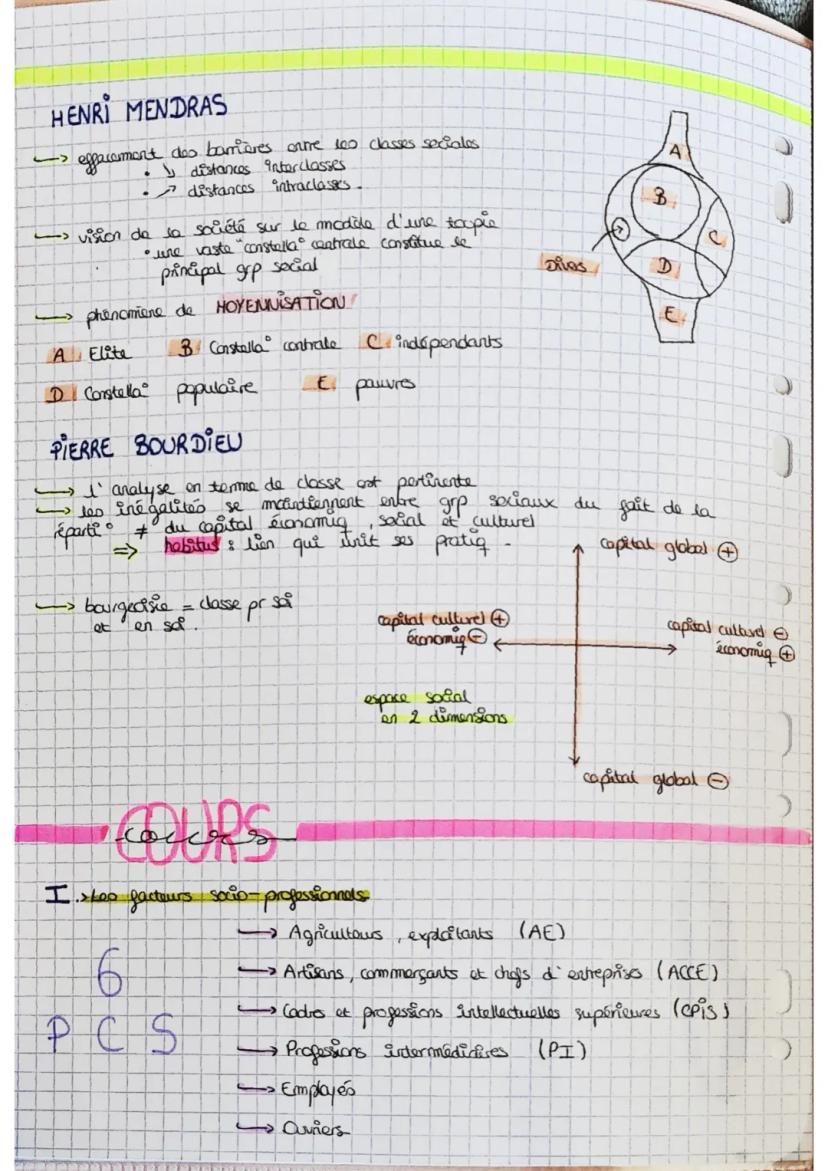 HENRI MENDRAS
→ effacement des barrières entre les classes sociales
• ↘ distances interclasses
• ↗ distances intraclasses.
→ vision de la société sur le modèle d'une toupie
• une vaste "constella° centrale constitue le
principal grp social
→ phénomène de MOYENNISATION
A
B
C
Divers
D
E
A Elite B Constella° centrale C indépendants
D Constella° populaire E pauvres
PIERRE BOURDIEU
→ l'analyse en terme de classe est pertinente
→ les inégalités se maintiennent entre grp sociaux du fait de la
réparti° ≠ du capital économiq, social et culturel
⇒ habitus : lien qui unit ses pratiq.
→ bourgeoisie = classe pr soi
et en soi.
capital global ⊕
capital culturel ⊕
économiq ⊖
capital culturel ⊖
économiq ⊕
espace social
en 2 dimensions
capital global ⊖
COURS
cours
I. Les facteurs socio-professionnels
6
PCS
→ Agriculteurs, exploitants (AE)
→ Artisans, commerçants et chefs d'entreprises (ACCE)
→ Cadres et professions intellectuelles supérieures (CPIS)
→ Professions intermédiaires (PI)
→ Employés
→ Ouvriers